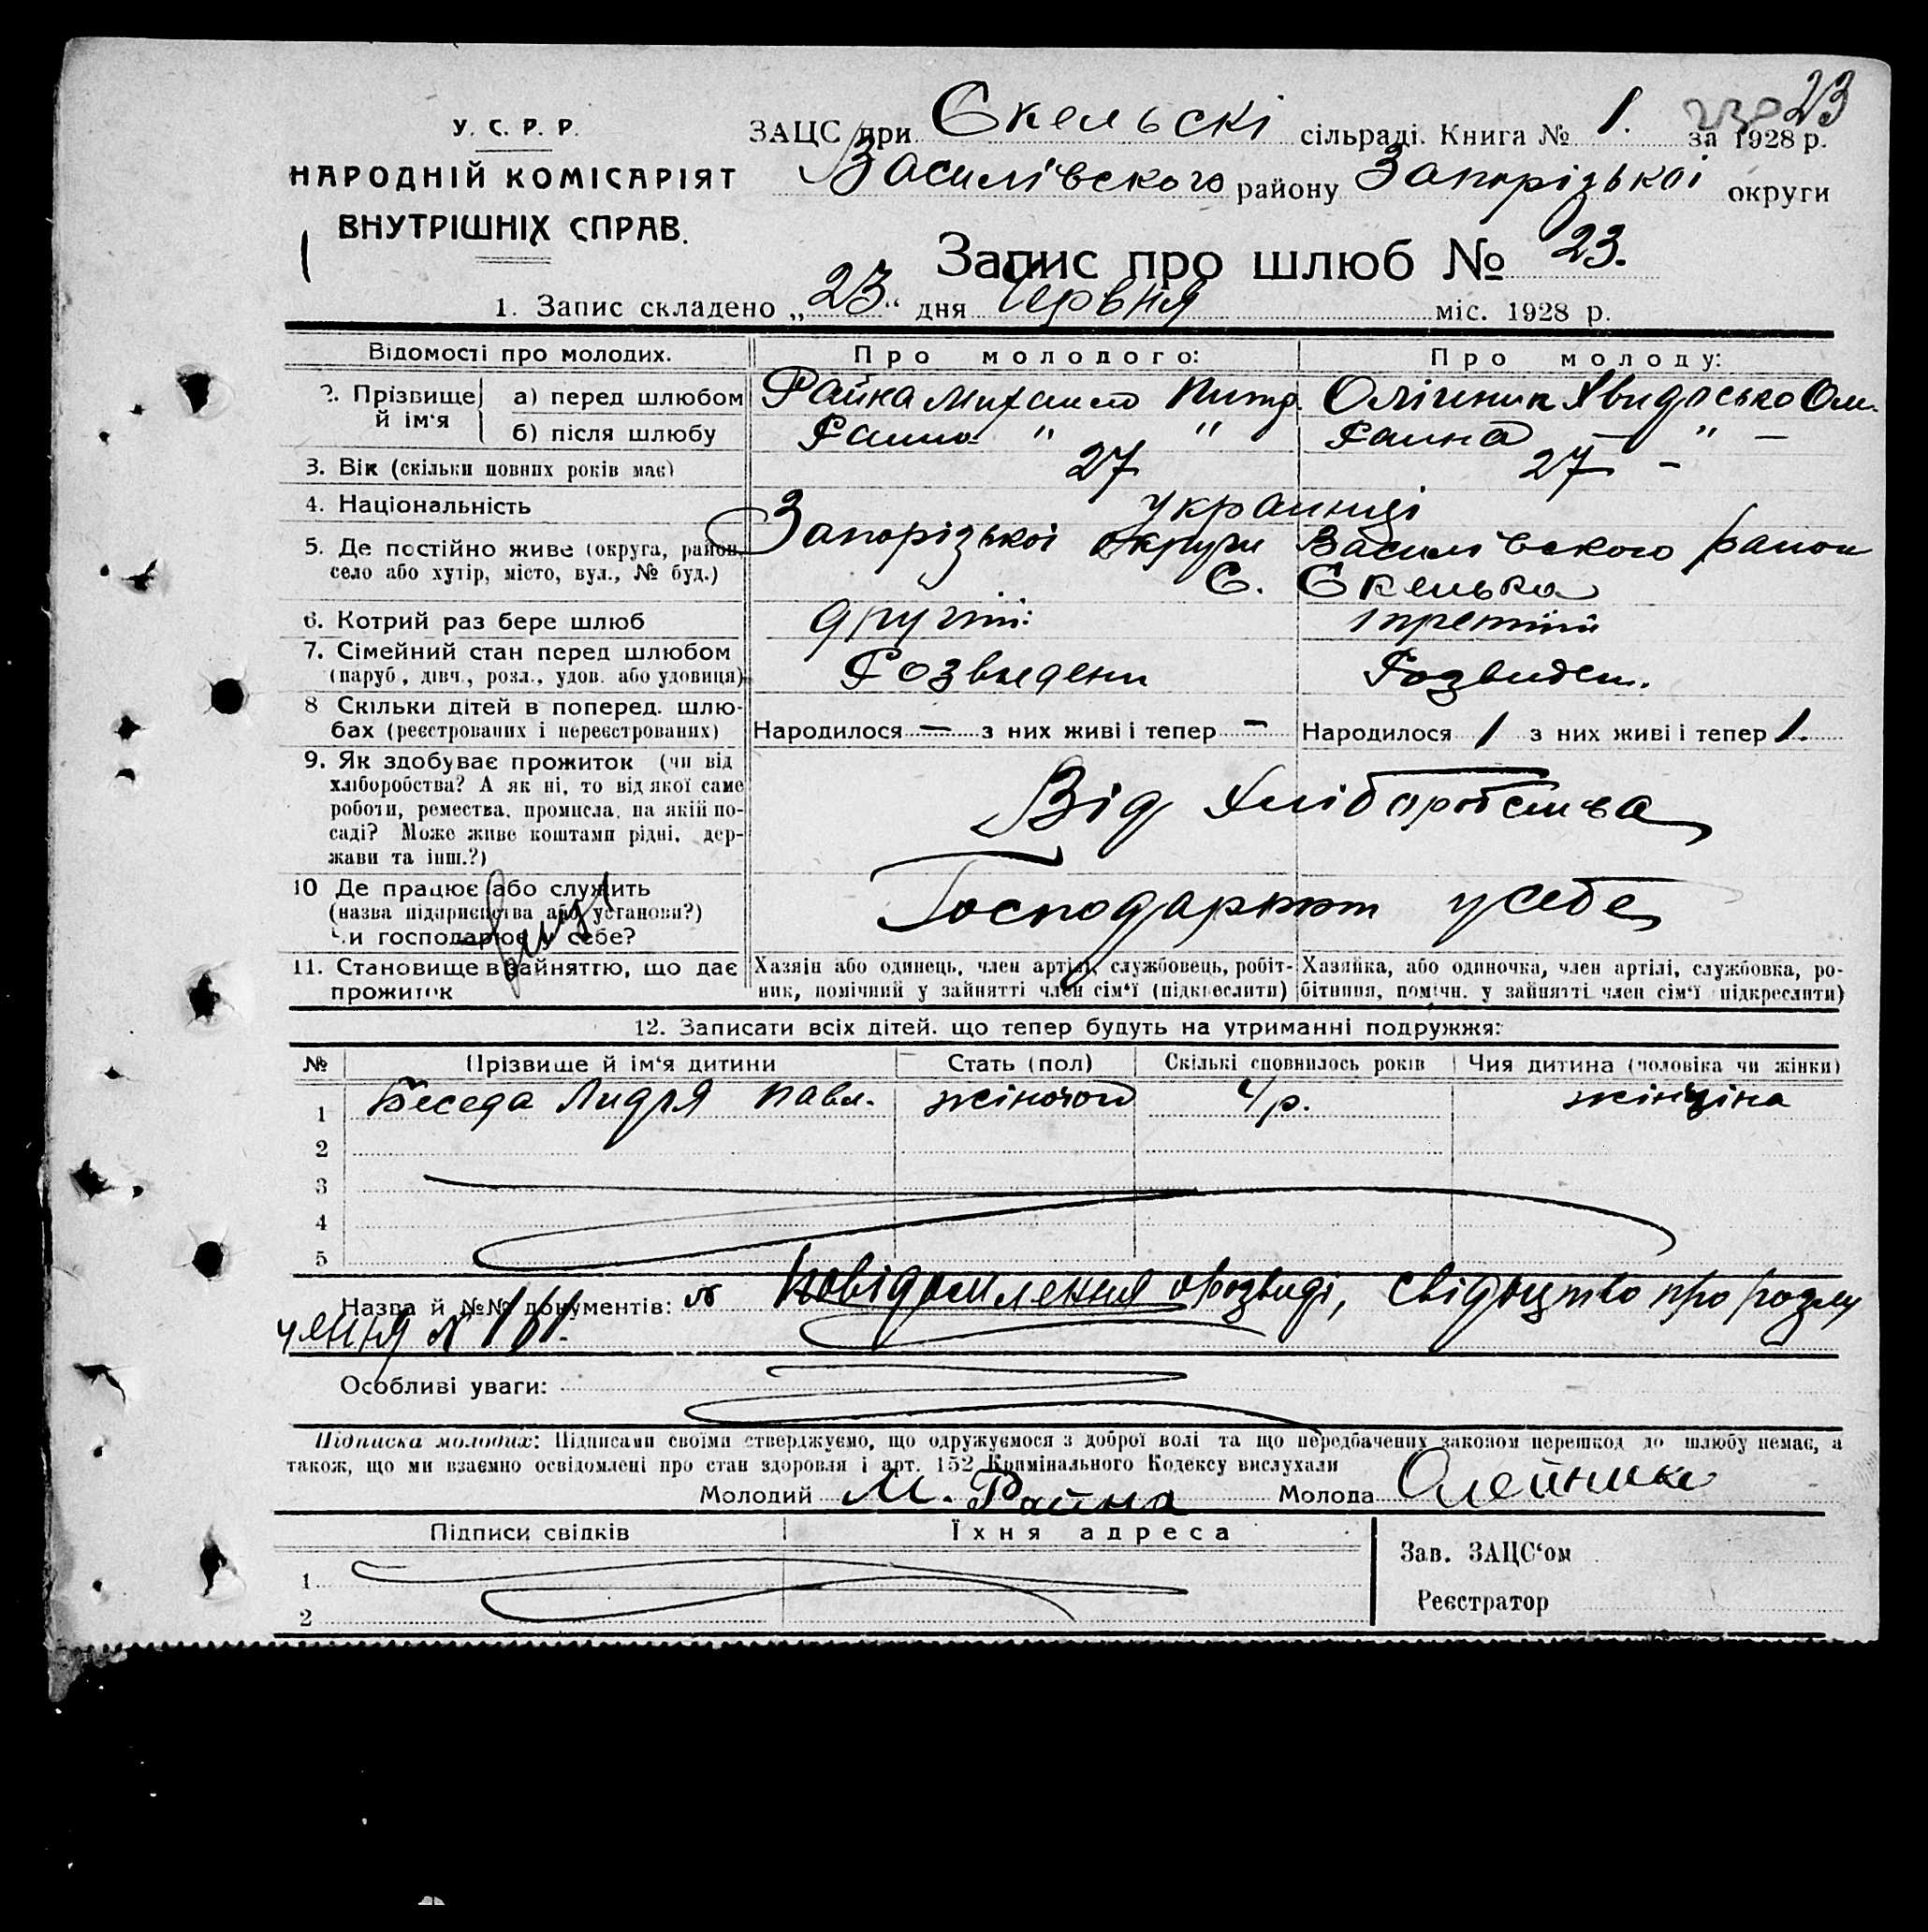 23
У. С. Р. Р.
НАРОДНІЙ КОМІСАРІЯТ
ВНУТРІШНІХ СПРАВ.
ЗАЦС при Скельскі сільраді. Книга № 1. за 1928 р.
Василівского району Запорізькоі округи
Запис про шлюб № 23.
1. Запис складено „23" дня Червня міс. 1928 р.
Відомості про молодих. Про молодого: Про молоду:
2. Прізвище й ім'я а) перед шлюбом Райка Михаило Олійник
б) після шлюбу " " Раина — " —
3. Вік (скільки повних років має) 27 27 –
4. Національність украинці
5. Де постійно живе (округа, район, Запорізькоі округи Василівского район
село або хутір, місто, вул., № буд.) С. Скелька
6. Котрий раз бере шлюб другий третий
7. Сімейний стан перед шлюбом Розведени Розведен.
(паруб., дівч., розл., удов. або удовиця)
8 Скільки дітей в поперед. шлю- Народилося — з них живі і тепер — Народилося 1 з них живі і тепер 1.
бах (реєстрованих і нереєстрованих)
9. Як здобуває прожиток (чи від
хліборобства? А як ні, то від якої саме Від хліборобства
роботи, ремества, промисла, на якій по-
саді? Може живе коштами рідні, дер-
жави та інш.?)
10 Де працює або служить
(назва підприємства або установи?) Господарют у себе
Чи господарює у себе?
11. Становище в зайняттю, що дає Хазяін або одинець, член артілі, службовець, робіт- Хазяйка, або одиночка, член артілі, службовка, ро-
прожиток ник, помічний у зайнятті член сім'ї (підкреслити) бітниця, помічн. у зайнятті член сім'ї (підкреслити)
12. Записати всіх дітей. що тепер будуть на утриманні подружжя:
№ Прізвище й ім'я дитини Стать (пол) Скількі сповнилось років Чия дитина (чоловіка чи жінки)
1 Беседа Лидія Павл. жіночого 4 р. жінціна
2
3
4
5
Назва й №№ документів: Повідомлення о розвиді, свідоцтво про розлу
чення № 161.
Особливі уваги:
Підписка молодих: Підписами своїми стверджуємо, що одружуємося з доброї волі та що передбачених законом перешкод до шлюбу немає, а
також, що ми взаємно освідомлені про стан здоровля і арт. 152 Кримінального Кодексу вислухали
Молодий М. Райка Молода Олейник
Підписи свідків Їхня адреса
Зав. ЗАЦС'ом
1
Реєстратор
2